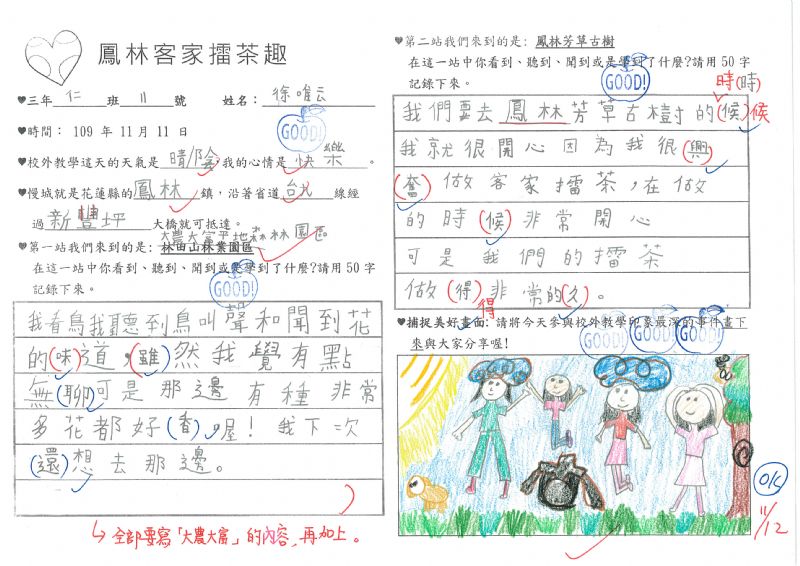 鳳林客家擂茶趣
♥三年 仁 班 11 號 姓名：徐唯云
♥時間： 109 年 11 月 11 日
GOOD!
♥校外教學這天的天氣是 晴/陰，我的心情是 快樂 。
♥慢城就是花蓮縣的 鳳林 鎮，沿著省道 台九 線經
過 新豐坪 大橋就可抵達。
大農大富平地森林園區
♥第一站我們來到的是：林田山林業園區
在這一站中你看到、聽到、聞到或是學到了什麼?請用 50 字
記錄下來。
GOOD!
我看鳥我聽到鳥叫聲和聞到花
的(味)道，(雖)然我覺有點
無(聊)可是那邊有種非常
多花都好(香)，喔！我下次
(還)想去那邊。
↳全部要寫「大農大富」的內容，再加上。
♥第二站我們來到的是：鳳林芳草古樹
在這一站中你看到、聽到、聞到或是學到了什麼?請用 50 字
記錄下來。
GOOD!
時(時)
我們要去鳳林芳草古樹的(候)候
我就很開心因為我很(興)
(奮)做客家擂茶，在做
的時(候)非常開心
可是我們的擂茶
做(得)非常的(久)。
得
♥捕捉美好畫面：請將今天參與校外教學印象最深的事件畫下
來與大家分享喔！
GOOD! GOOD! GOOD!
OK
11/12